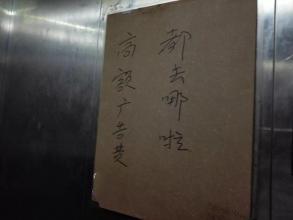 都去哪啦
高额广告费